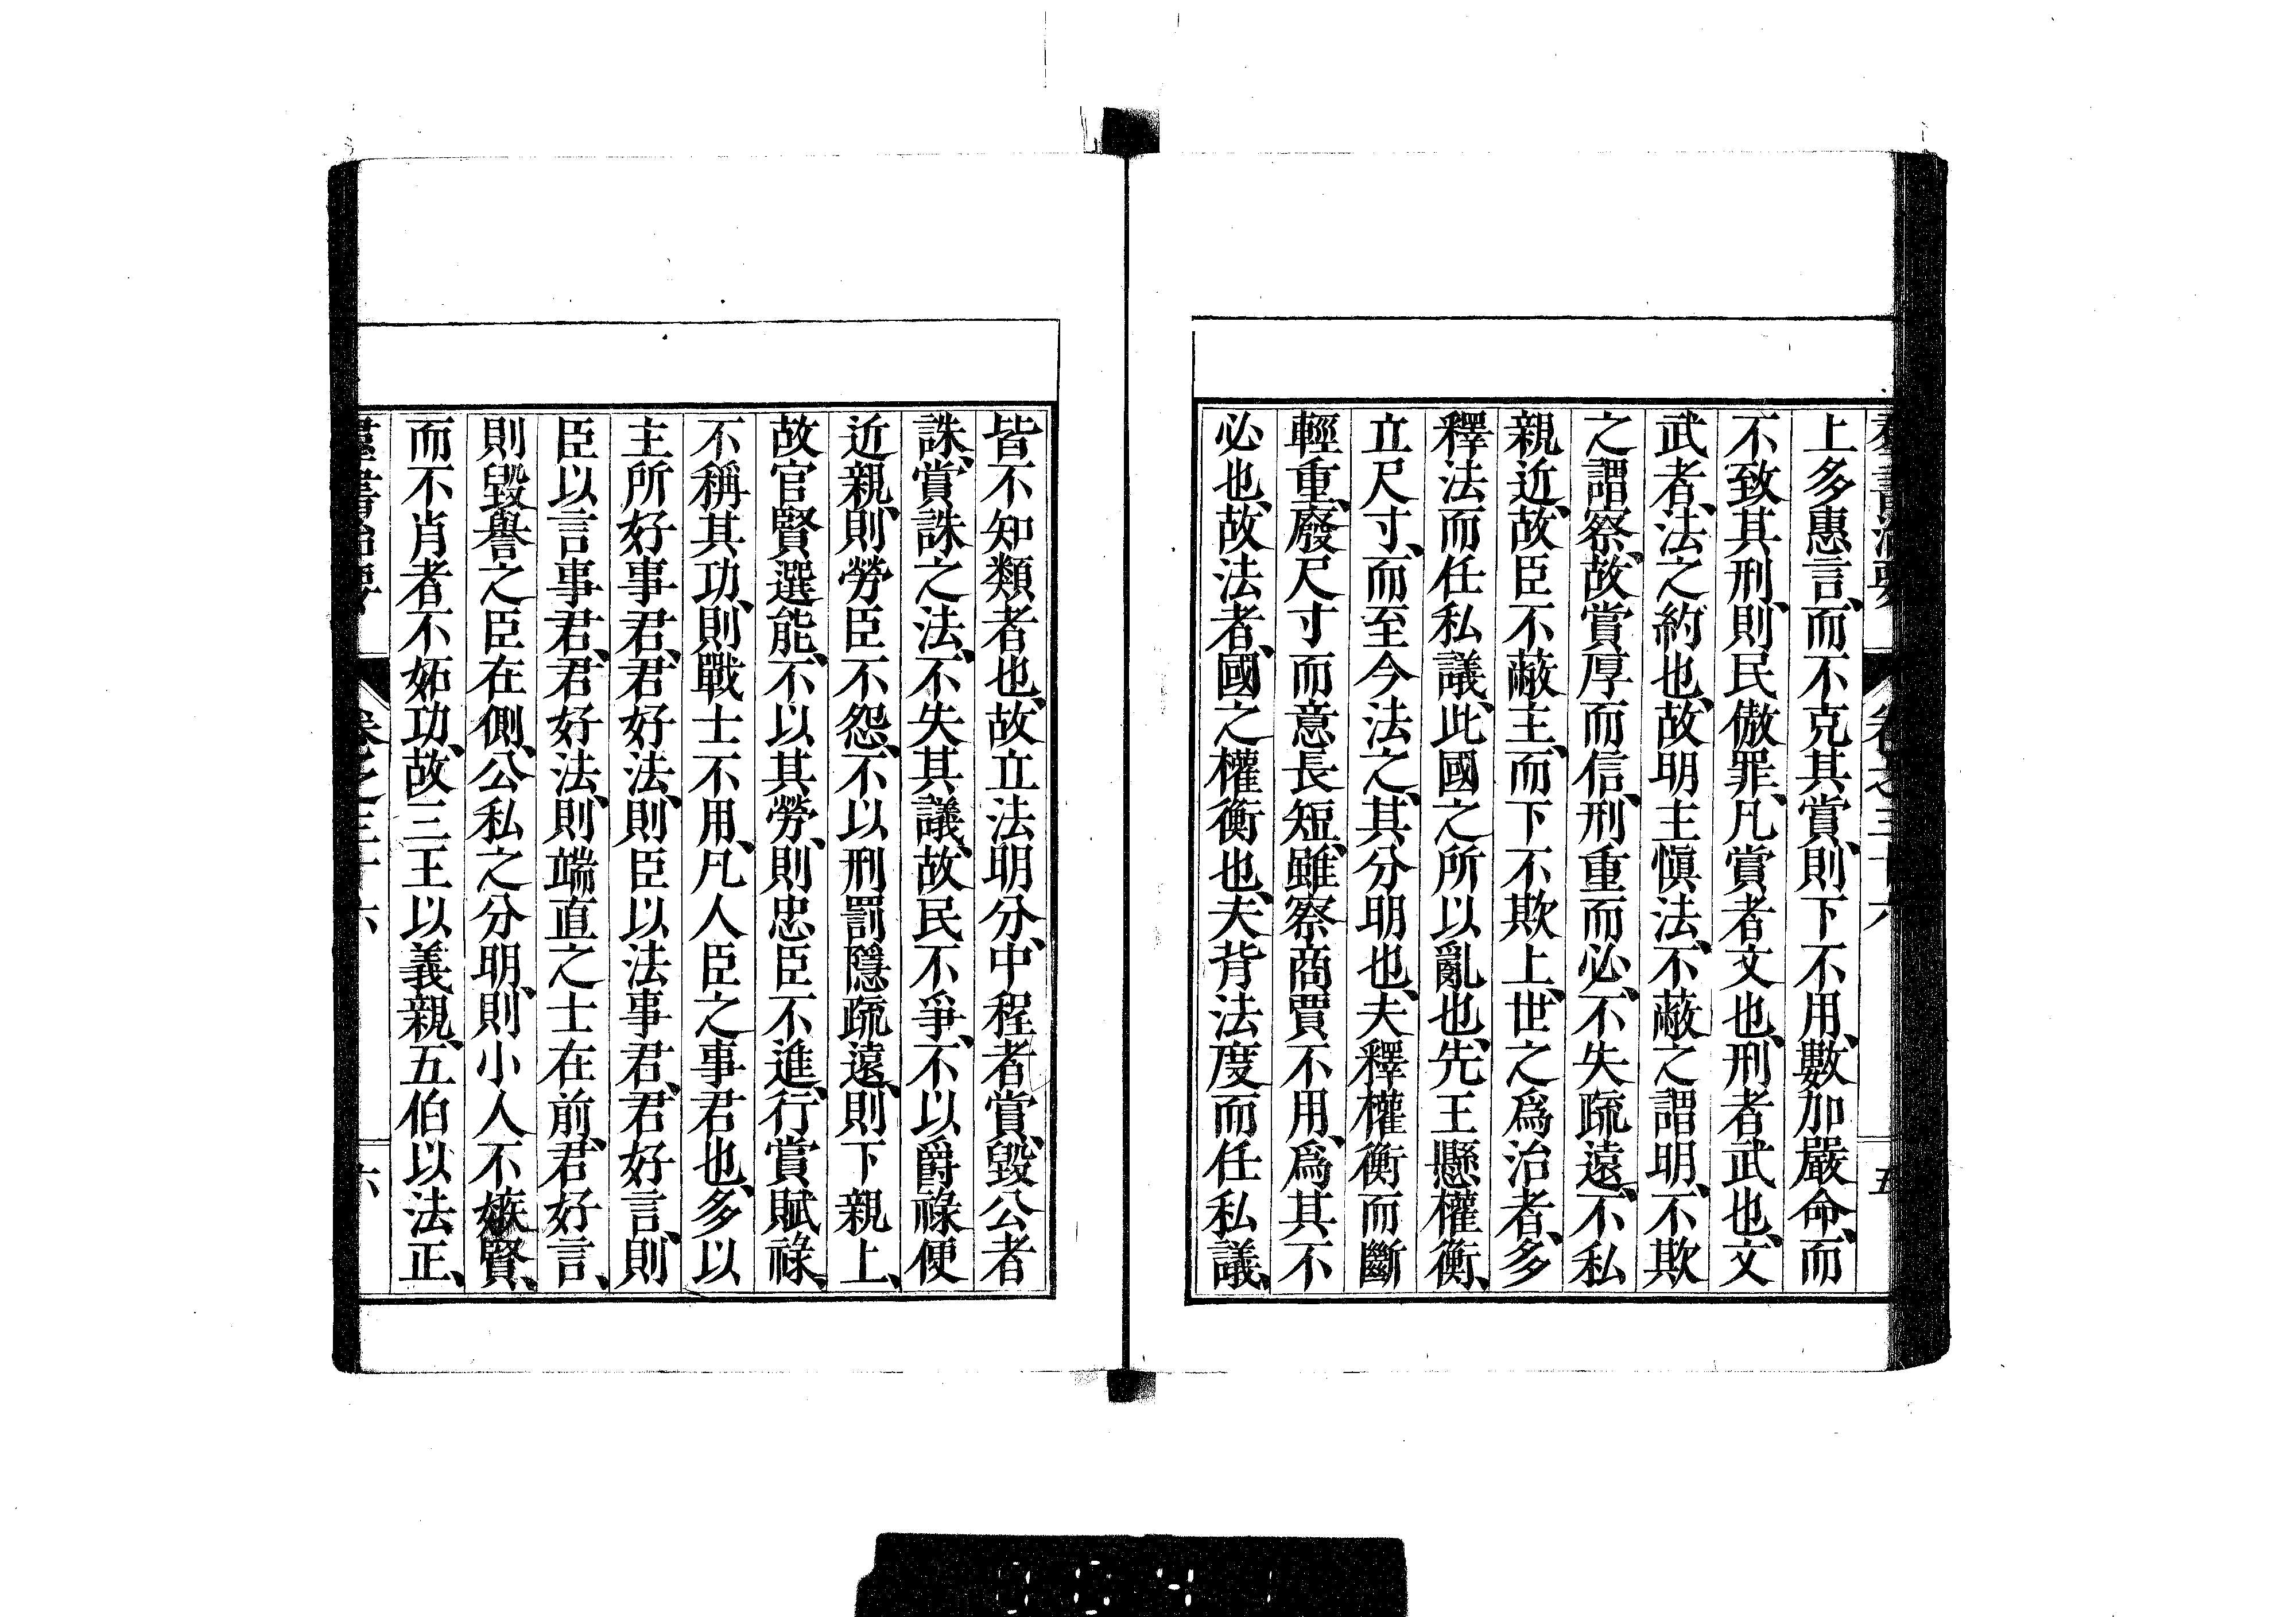 群書治要 卷之三十六 五
上多惠言、而不克其賞、則下不用、數加嚴命、而
不致其刑、則民傲罪、凡賞者文也、刑者武也、文
武者、法之約也、故明主愼法、不蔽之謂明、不欺
之謂察、故賞厚而信、刑重而必、不失疏遠、不私
親近、故臣不蔽主、而下不欺上、世之爲治者、多
釋法而任私議、此國之所以亂也、先王懸權衡、
立尺寸、而至今法之、其分明也、夫釋權衡而斷
輕重、廢尺寸而意長短、雖察商賈不用、爲其不
必也、故法者、國之權衡也、夫背法度而任私議、
皆不知類者也、故立法明分、中程者賞、毀公者
誅、賞誅之法、不失其議、故民不爭、不以爵祿便
近親、則勞臣不怨、不以刑罰隱疏遠、則下親上、
故官賢選能、不以其勞、則忠臣不進、行賞賦祿、
不稱其功、則戰士不用、凡人臣之事君也、多以
主所好事君、君好法、則臣以法事君、君好言、則
臣以言事君、君好法、則端直之士在前、君好言、
則毀譽之臣在側、公私之分明、則小人不嫉賢、
而不肖者不妬功、故三王以義親、五伯以法正、
群書治要 卷之三十六 六